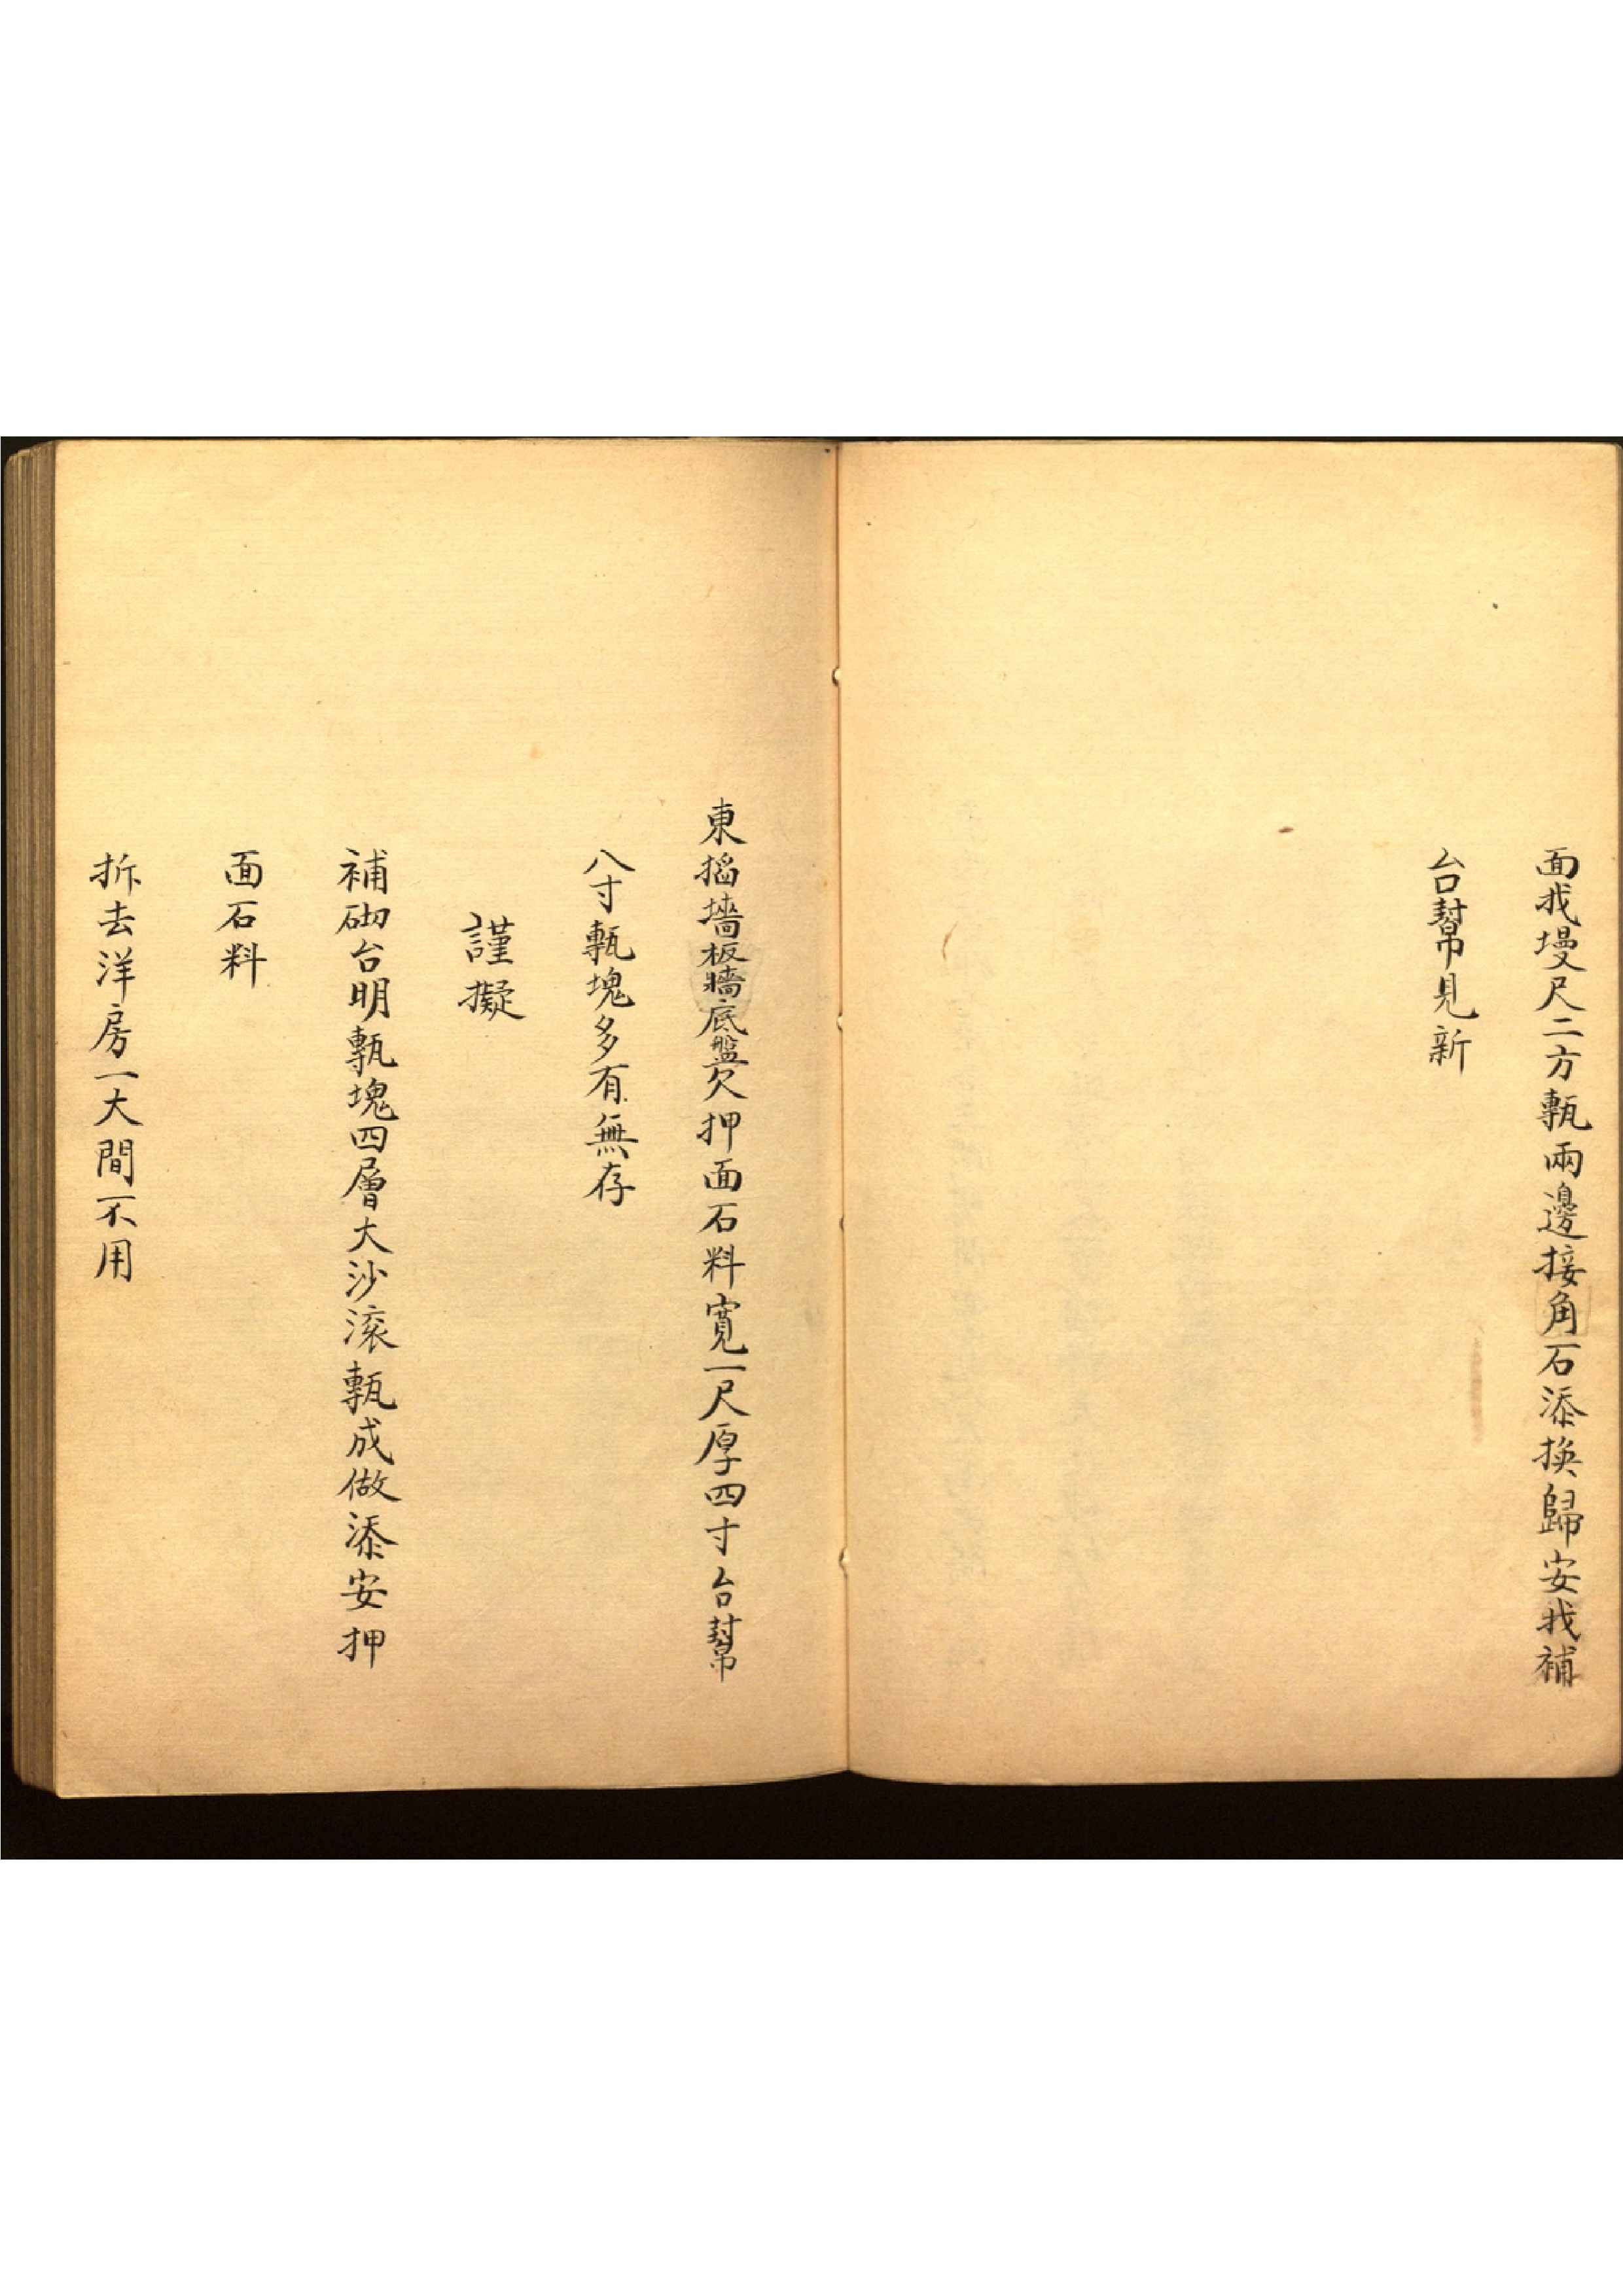 面找墁尺二方甎兩邊接角石添換歸安找補
台幫見新
東搯墻板牆底盤欠押面石料寬一尺厚四寸台幫
八寸甎塊多有無存
謹擬
補砌台明甎塊四層大沙滚甎成做添安押
面石料
拆去洋房一大間不用